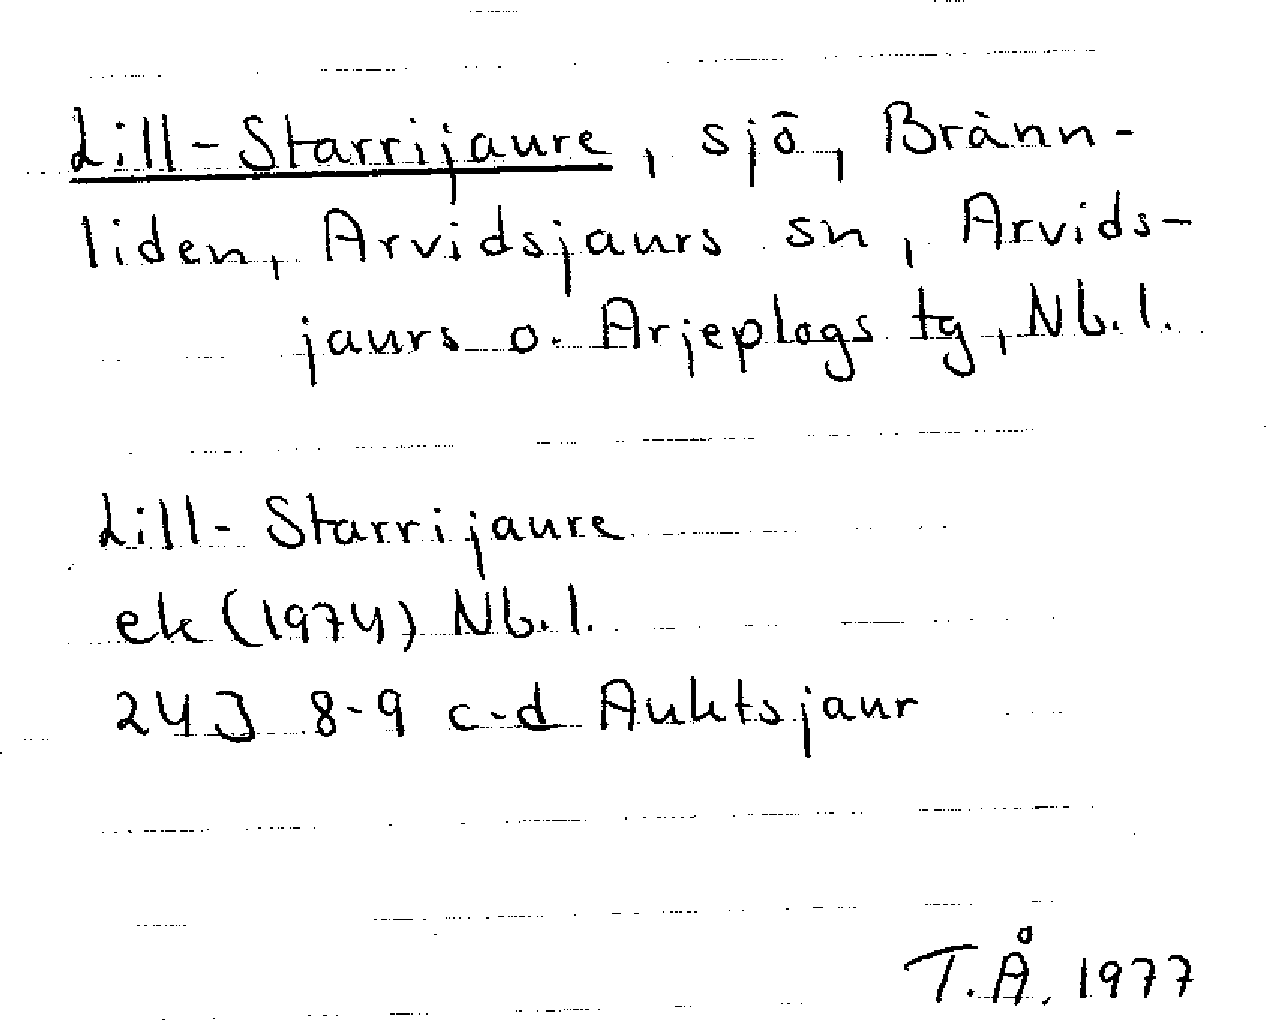 Lill-Starrijaure, sjö, Bränn-
liden, Arvidsjaurs sn, Arvids-
jaurs o. Arjeplogs tg, Nb.l.
Lill-Starrijaure
ek (1974) Nb.l.
24J 8-9 c-d Auktsjaur
T.Å. 1977